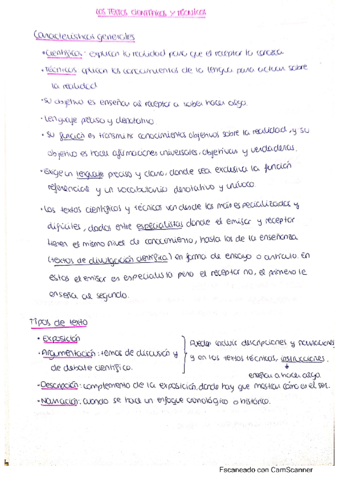 LOS TEXTOS CIENTÍFICOS Y TÉCNICOS
Características generales
• Científicos: explican la realidad para que el receptor la conozca.
• Técnicos: aplican los conocimientos de la lengua para actuar sobre
la realidad
• Su objetivo es enseñar al receptor a saber hacer algo.
• Lenguaje preciso y denotativo.
• Su función es transmitir conocimientos objetivos sobre la realidad, y su
objetivo es hacer afirmaciones universales, objetivas y verdaderas.
• Exige un lenguaje preciso y claro, donde sea exclusiva la función
referencial y un vocabulario denotativo y unívoco.
• Los textos científicos y técnicos van desde los más especializados y
difíciles, dados entre especialistas donde el emisor y receptor
tienen el mismo nivel de conocimiento, hasta los de la enseñanza
(textos de divulgación científica) en forma de ensayo o artículo. En
estos el emisor es especialista pero el receptor no, el primero le
enseña al segundo.
Tipos de texto
• Exposición
• Argumentación: temas de discusión y
de debate científico.
Pueden incluir descripciones y narraciones
y en los textos técnicos, instrucciones.
enseñan a hacer algo.
• Descripción: complemento de la exposición, donde hay que mostrar cómo es el
• Narración: cuando se hace un enfoque cronológico o histórico.
Escaneado con CamScanner